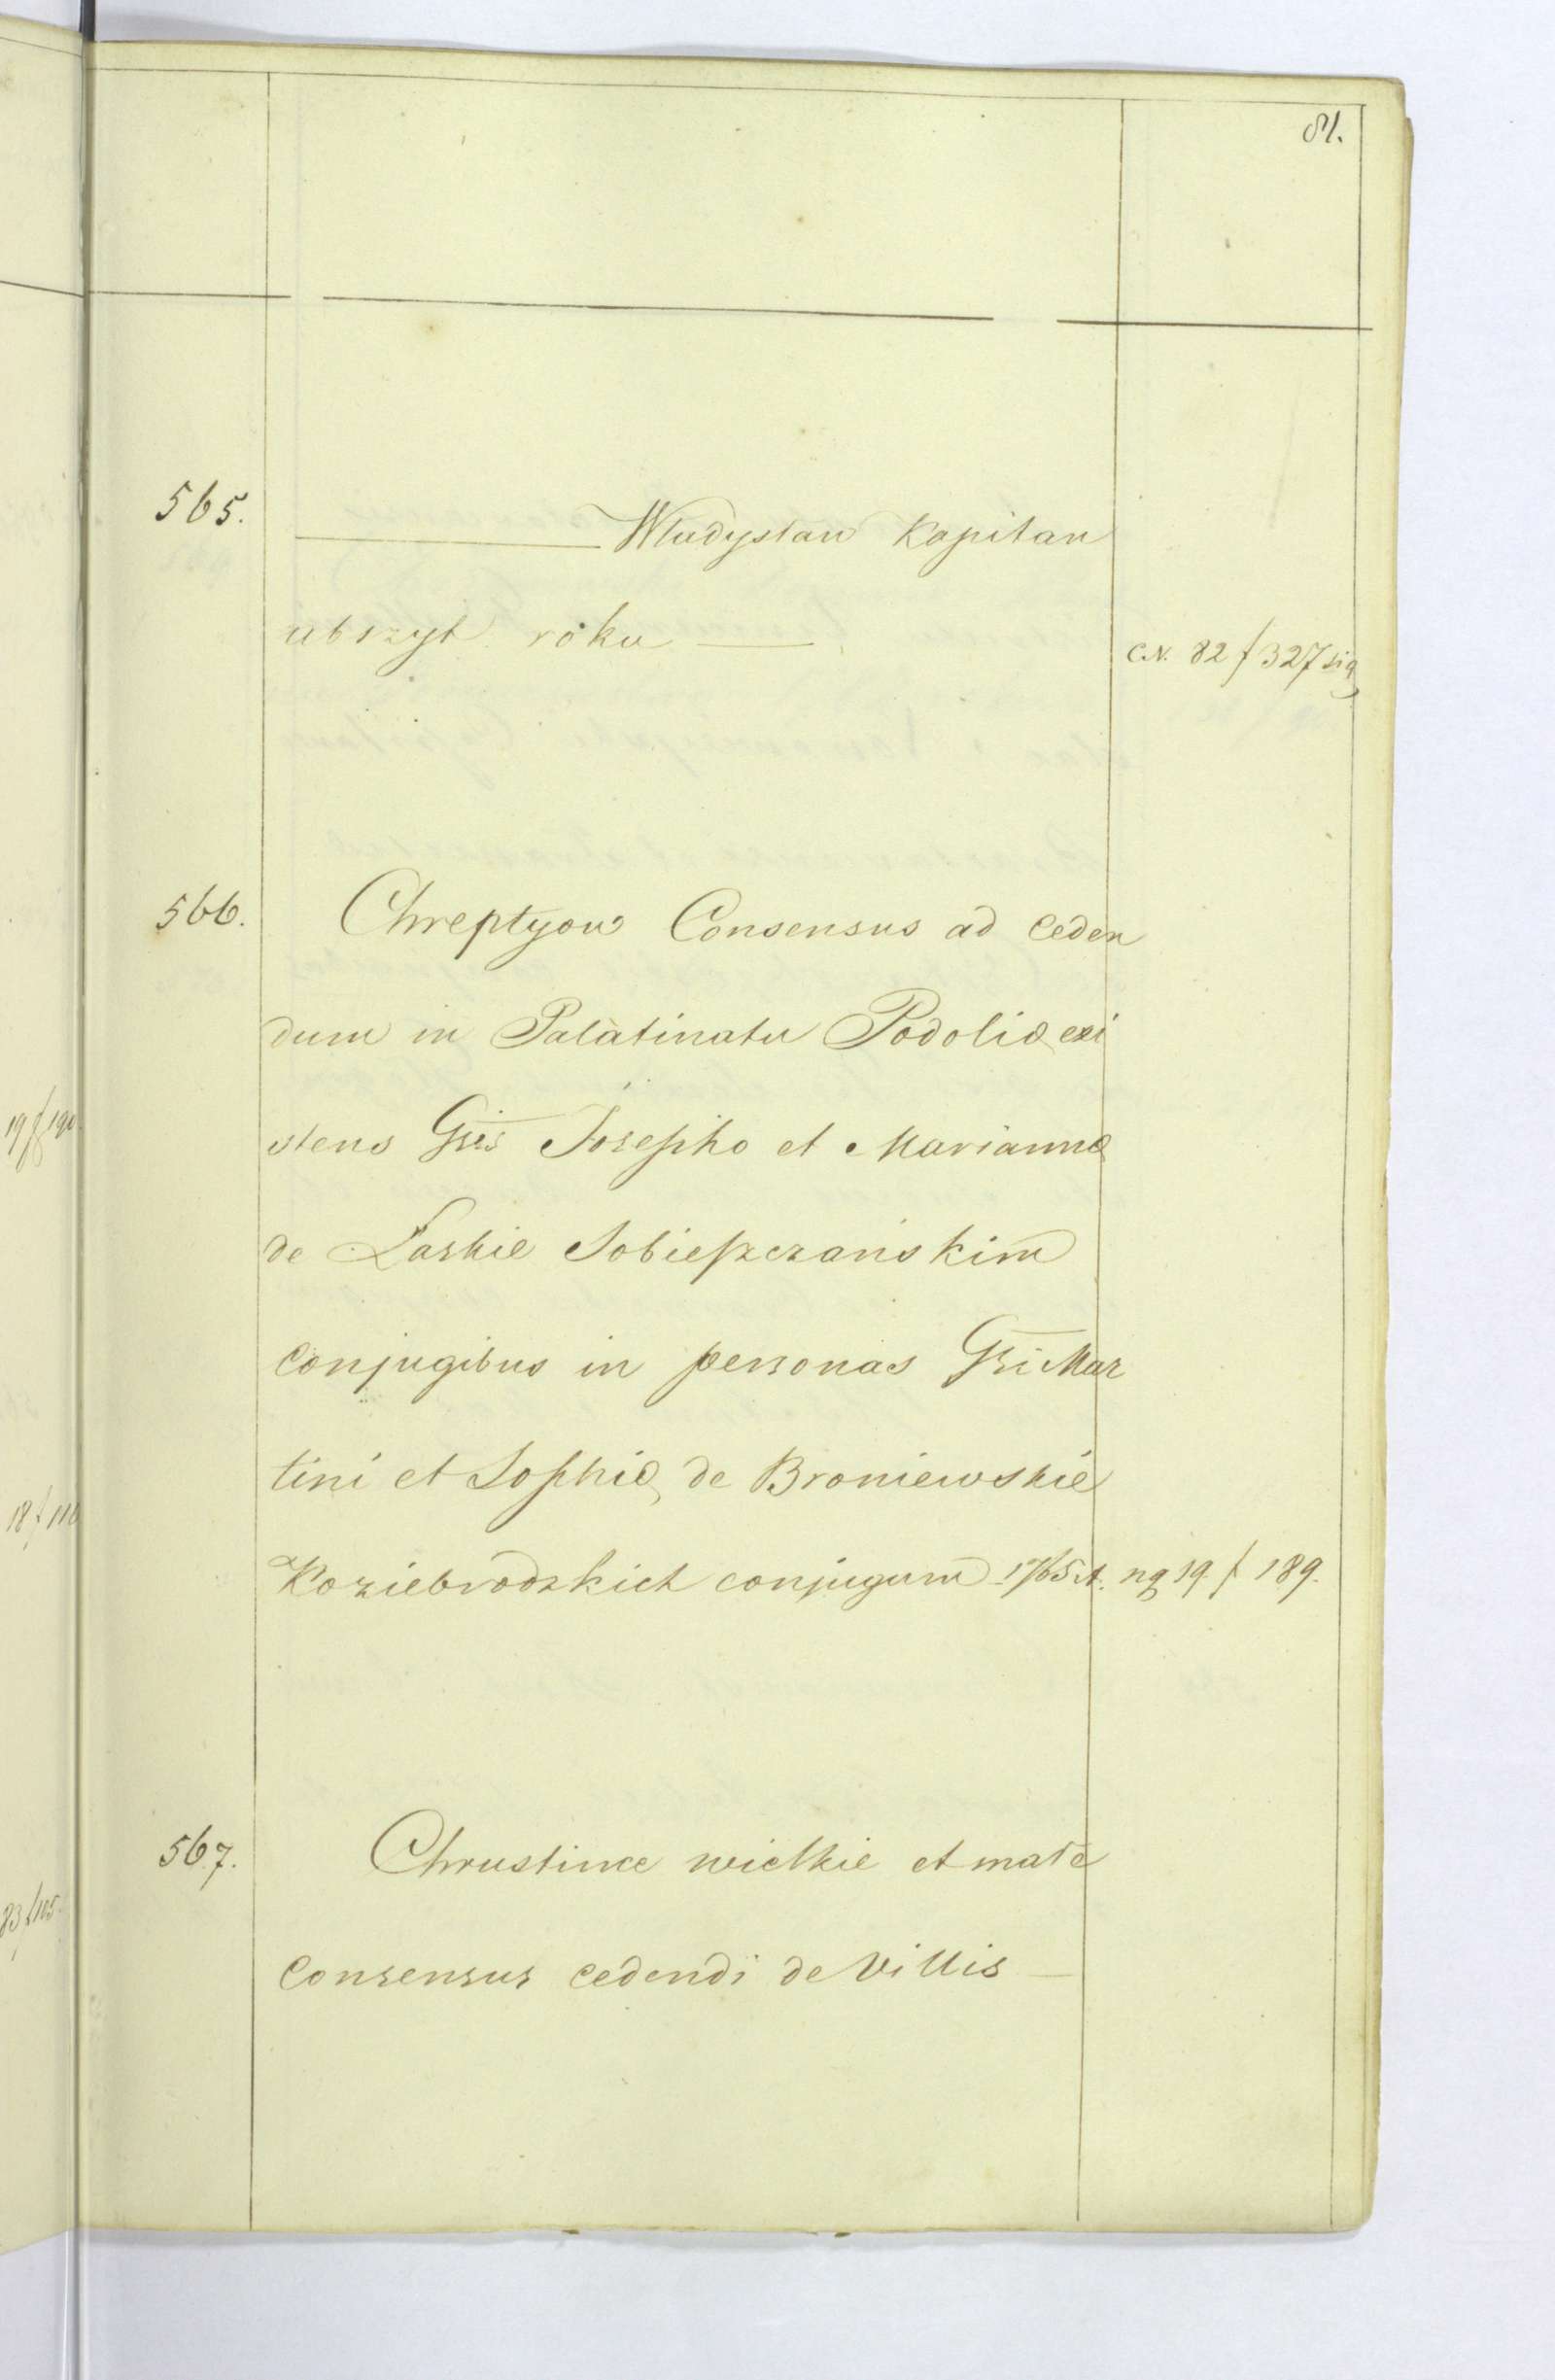 81.
565. ——— Władysław Kapitan
abszyt roku —
C.N. 82 f 327 sig
566. Chreptyow Consensus ad ceden
dum in Palatinatu Podoliæ exi
stens Gsis Josepho et Mariannæ
de Laskie Sobieszczańskim
conjugibus in personas Gsi Mar
tini et Sophiæ de Broniewskie
Koziebrodzkich conjugum 1765 A. ng 19. f 189.
567. Chrustince wielkie et małe
consensus cedendi de Villis —
19 f 190
18 f 116
83 f 115.